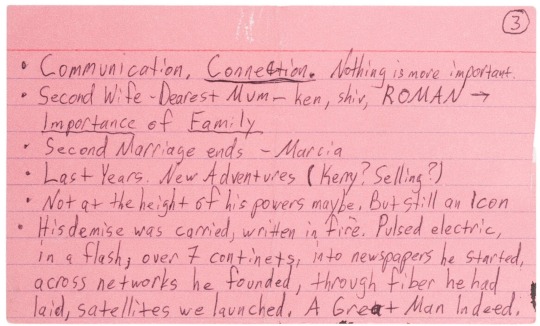 3
• Communication, Connection. Nothing is more important.
• Second Wife - Dearest Mum - ken, shiv, ROMAN →
Importance of Family
• Second Marriage ends - Marcia
• Last Years. New Adventures (Kerry? Selling?)
• Not at the height of his powers maybe. But still an Icon
• His demise was carried, written in fire. Pulsed electric,
in a flash, over 7 continets, into newspapers he started,
across networks he founded, through fiber he had
laid, satellites we launched. A Great Man Indeed.